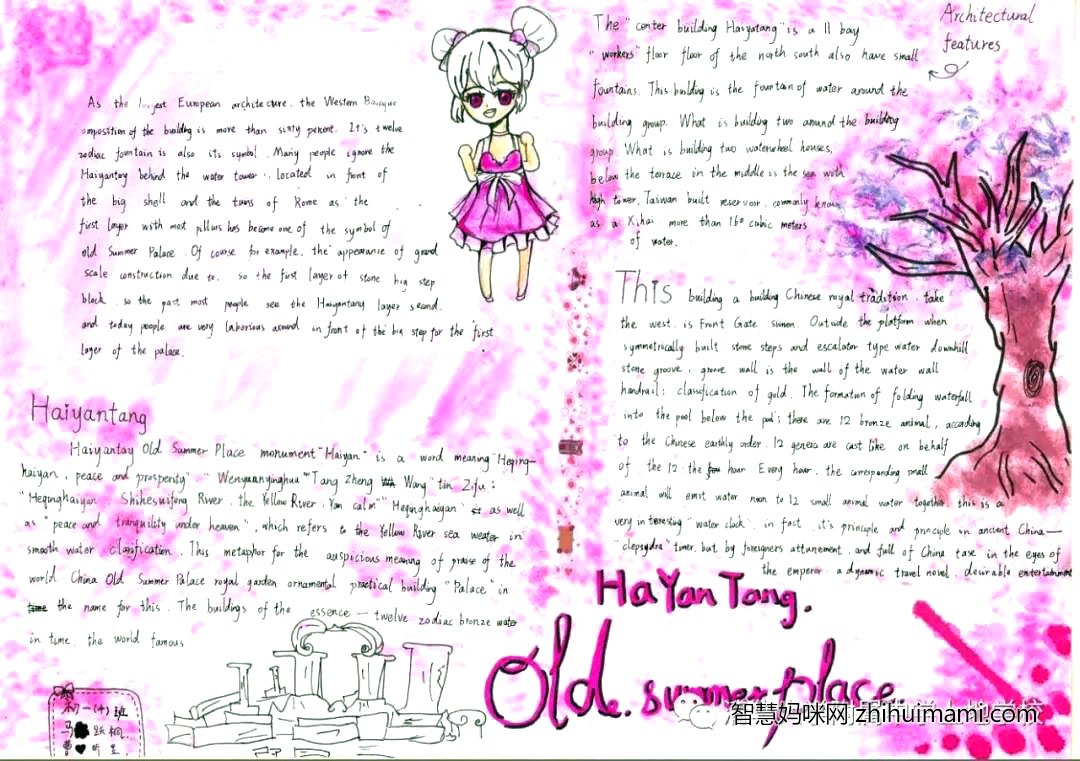 As the largest European architecure. the Western Baroque
omposition of the building is more than sixty percent. It's twelve
zodiac fountain is also its symbol. Many people ignore the
Haiyantang behind the water tower, located in front of
the big shell and the turns of Rome as the
first layer with most pillars has become one of the symbol of
old Summer Palace. Of course for example, the appearance of grand
scale construction due to. so the first layer of stone big step
block. so the past most people see the Haiyantang layer second.
and today people are very laborious around in front of the big step for the first
layer of the palace.
Haiyantang
Haiyantay Old Summer Place monument "Haiyan" is a word meaning "Heqing-
haiyan, peace and prosperity" "Wenyuanyinghua" "Tang Zheng Wang" tin Zifu:
"Heqinghaiyan Shihesuifeng River. the Yellow River. Yan calm" "Heqinghaeyan" as well
as "peace and tranquility under heaven", which refers to the Yellow River sea weater in
smooth water clarification. This metaphor for the auspicious meaning of praise of the
world China Old Summer Palace royal garden ornamental practical building "Palace" in
the name for this. The buildings of the essence — twelve zodiac bronze water
in time, the world famous
初一(十)班
马 跃桐
曹 昕
Architectural
features
The "center building Haiyatang" is a 11 bay
"workers" floor floor of the north south also have small
fountains. This building is the fountain of water around the
building group. What is building two around the building
group What is building two waterwheel houses,
below the terrace in the middle is the sea with
high tower. Taiwan built reservoir, commonly known
as a Xihai more than 160 cubic meters
of water.
This building a building Chinese royal tradition. take
the west. is Front Gate simen. Outside the platform when
symmetrically built stone steps and escalator type water downhill
stone groove, groove wall is the wall of the water wall
handrail: classification of gold. The formation of folding waterfall
into the pool below the pool; there are 12 bronze animal, according
to the Chinese earthly order. 12 genera are cast like on behalf
of the 12 the hour Every hour. the corresponding small
animal will emit water noon to 12 small animal water together this is a
very interesting "water clock". in fact, it's principle and principle in ancient China—
"clepsydra" timer. but by foreigners attunement. and full of China tase in the eyes of
the emperor a dynamic travel novel. desirable entertainment
HaYan Tang.
Old. summer place.
智慧妈咪网 zhihuimami.com